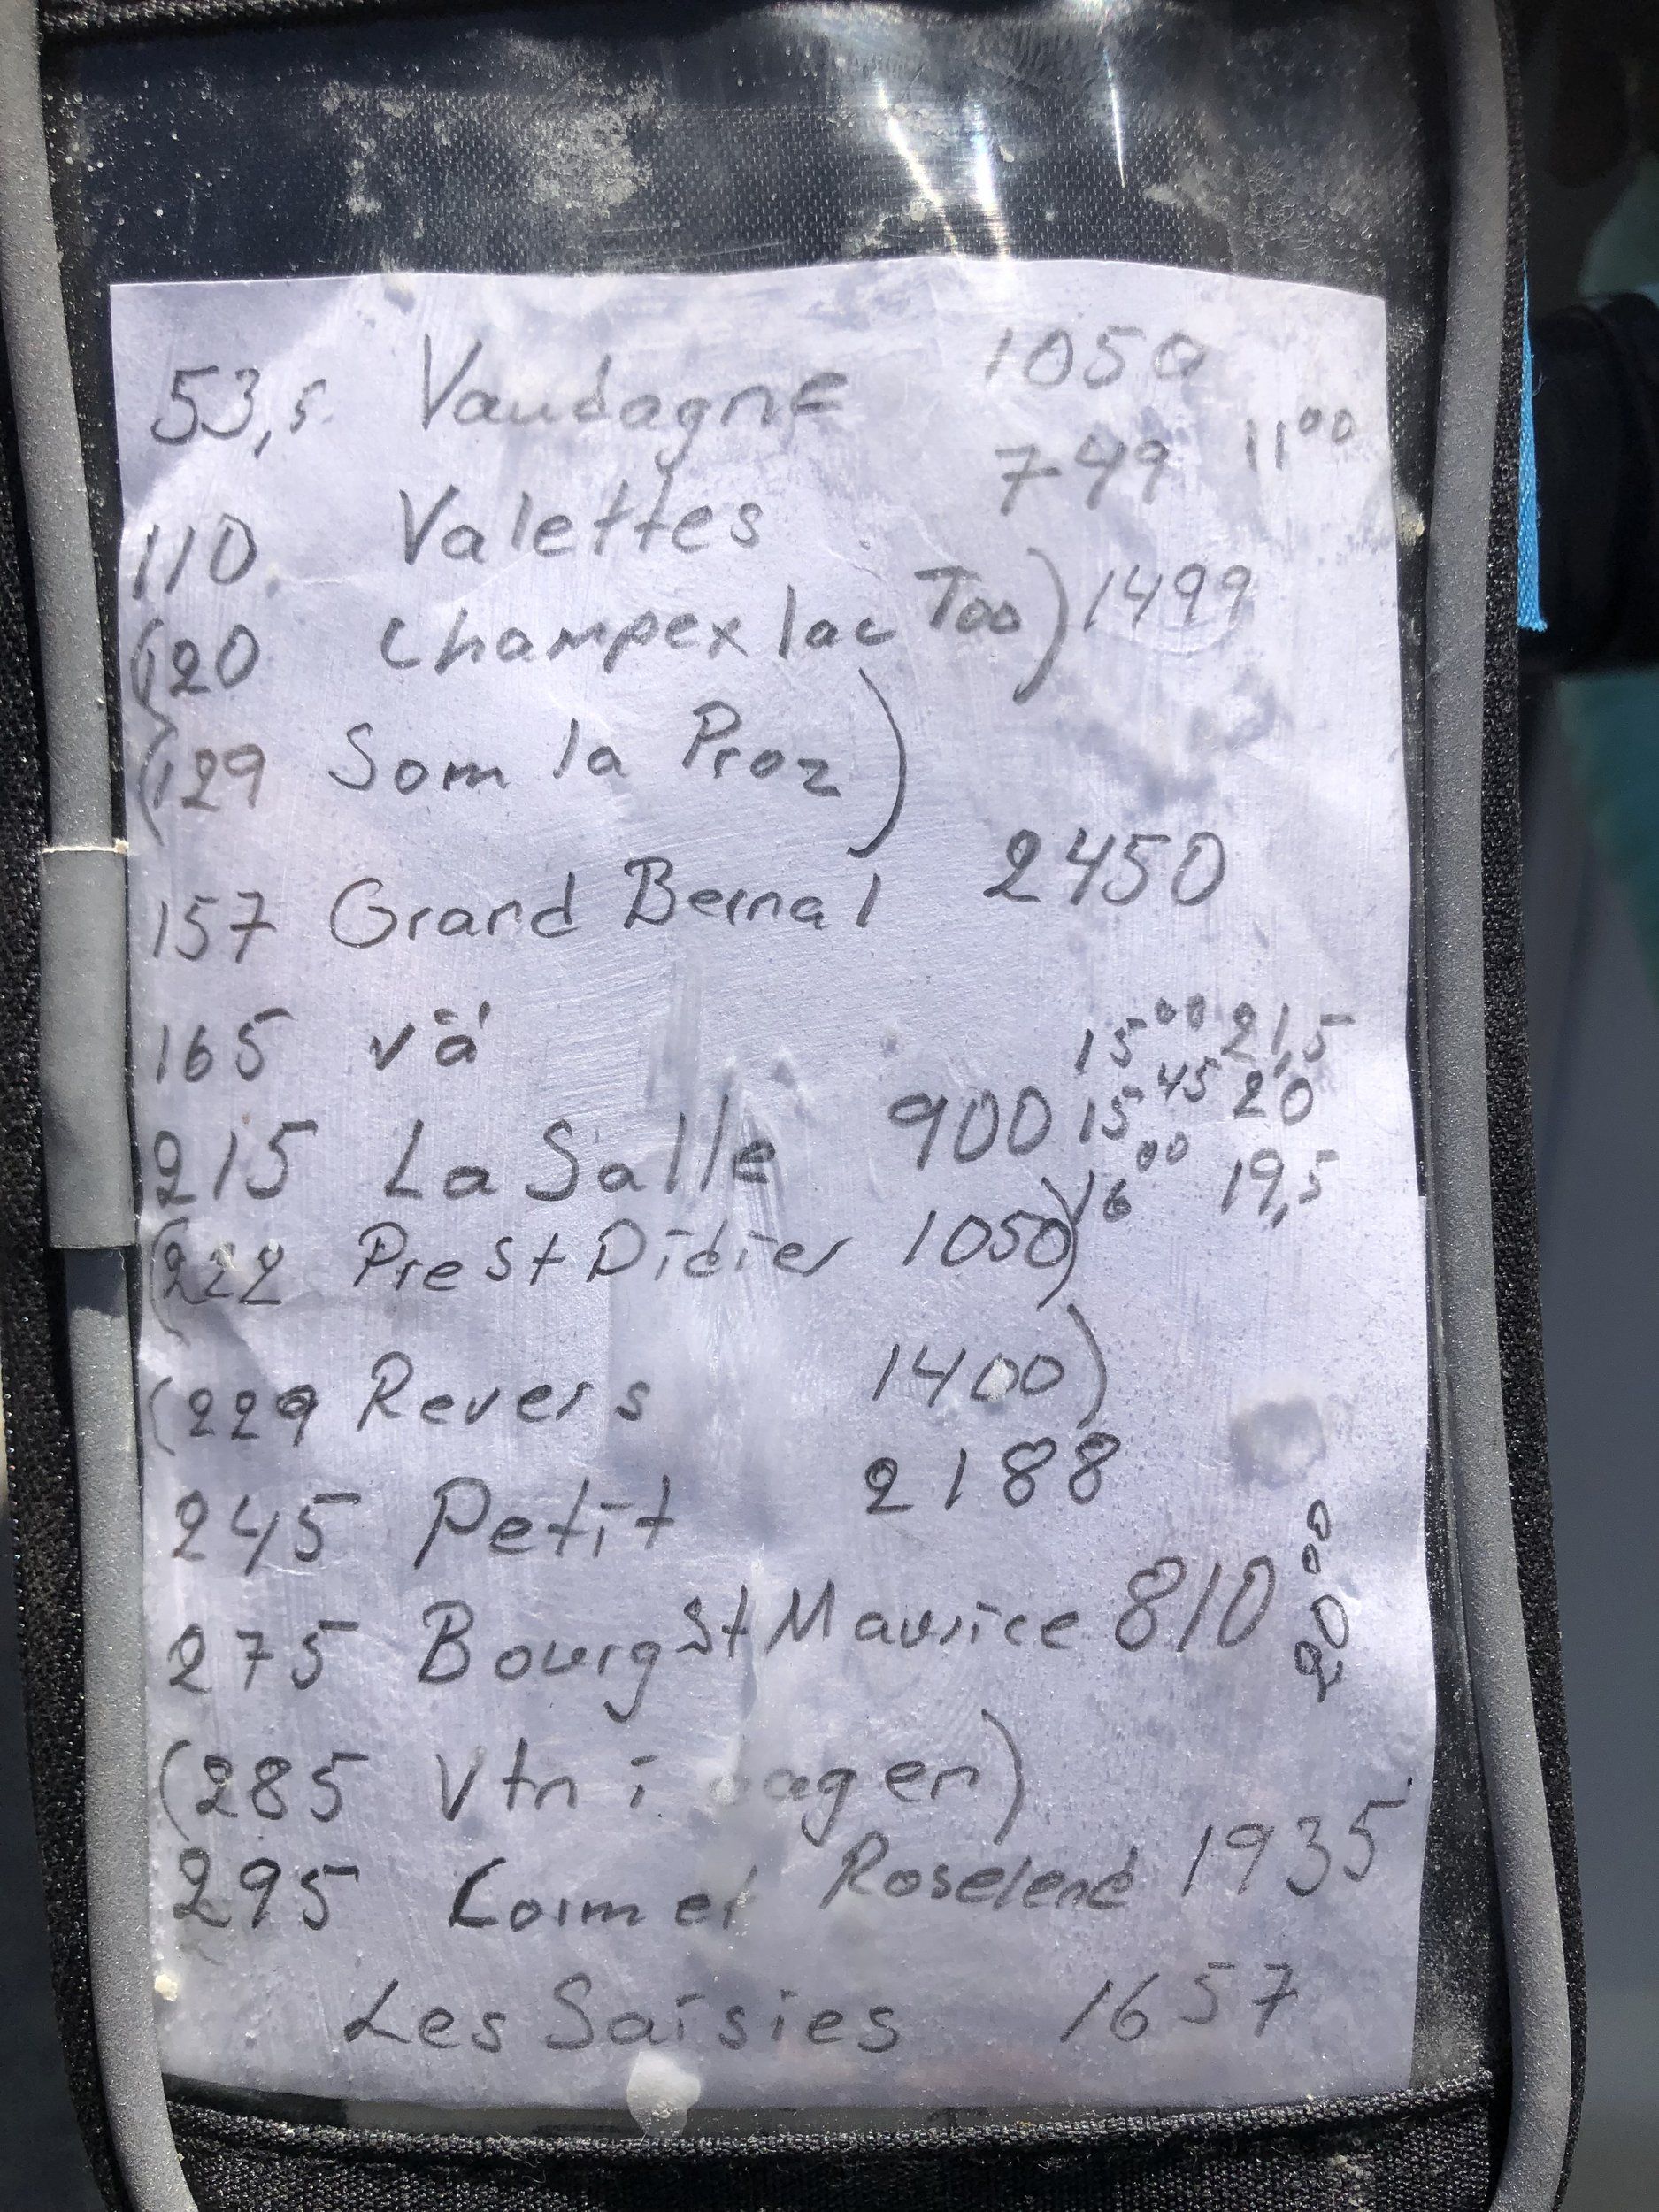 53,5 Vaudagne 1050
110 Valettes 749 11⁰⁰
(120 Champex lac Too) 1499
(129 Som la Proz)
157 Grand Bernal 2450
165 vä
15⁰⁰ 21,5
215 La Salle 900 15⁴⁵ 20
16⁰⁰ 19,5
(222 Pre St Didier 1050)
(229 Revers 1400)
245 Petit 2188
275 Bourg St Maurice 810 20⁰⁰
(285 Vtn i dagen)
295 Cormet Roselend 1935
Les Saisies 1657